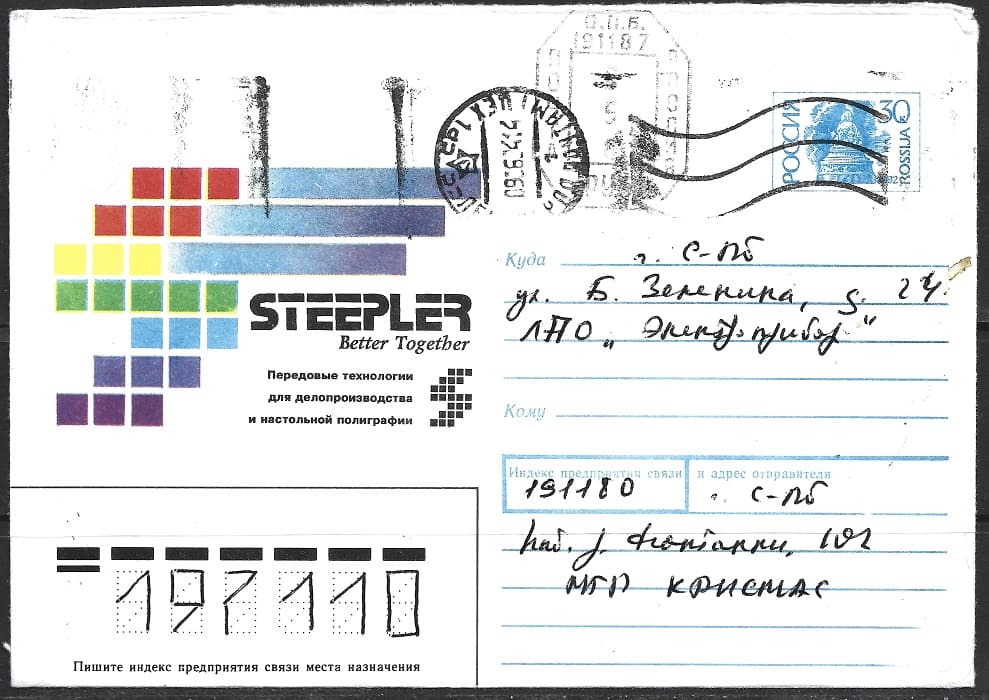 С.П.Б.
191187
РОССИЯ 30
ROSSIJA К
STEEPLER
Better Together
Передовые технологии
для делопроизводства
и настольной полиграфии
Куда г. С-Пб
ул. Б. Зеленина, д. 24
ЛНПО „Электроприбор"
Кому
Индекс предприятия связи и адрес отправителя
191180 г. С-Пб
наб. р. Фонтанки, 102
КРИСМАС
197110
Пишите индекс предприятия связи места назначения